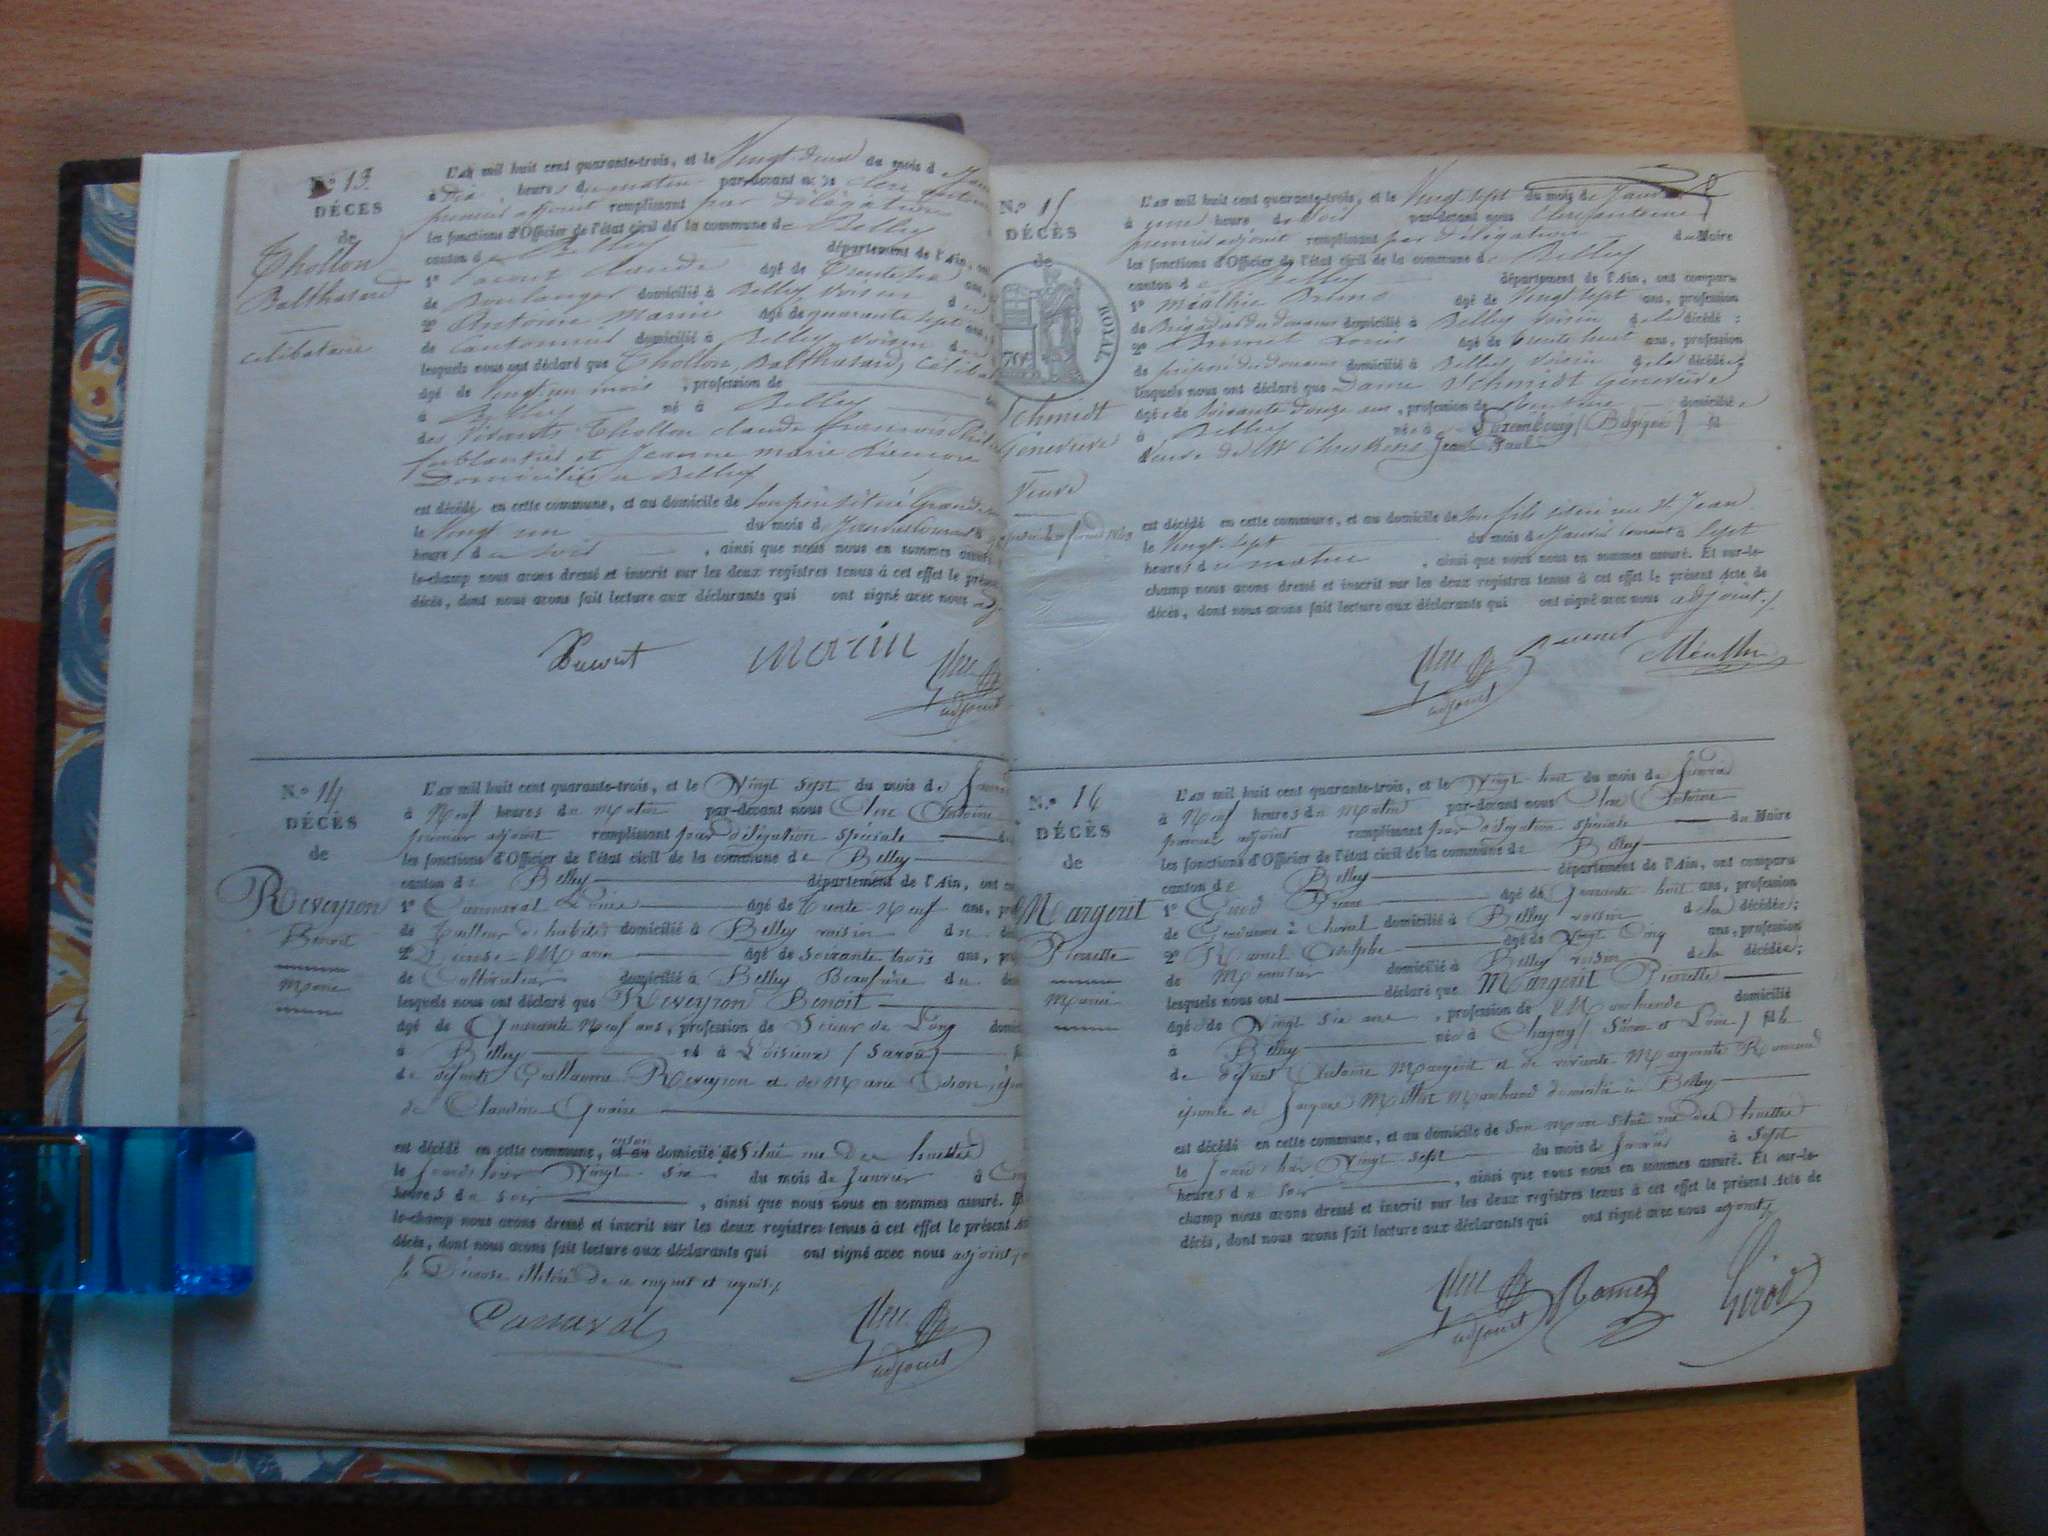 N.º 13.
DÉCÈS
de
Thollon
Balthazard
célibataire
L'an mil huit cent quarante-trois, et le Vingt-deux du mois d
à Dix heures du matin par-devant nous Clerc Antoine
premier adjoint remplissant par délégation
les fonctions d'Officier de l'état civil de la commune de Belley
canton de Belley département de l'Ain, ont
1º Claude âgé de
de Boulanger domicilié à Belley voisin d
2º Antoine Marin âgé de quarante sept ans
de Cantonnier domicilié à Belley, voisin d
lesquels nous ont déclaré que Thollon, Balthazard, Céliba
âgé de Vingt un mois, profession de
à Belley né à Belley
des vivants Thollon Claude François
ferblantier et Jeanne Marie
Domiciliés à Belley
est décédé en cette commune, et au domicile de son père situé Grande
le Vingt un du mois de Janvier courant à
heures du soir, ainsi que nous nous en sommes assuré
le-champ nous avons dressé et inscrit sur les deux registres tenus à cet effet le prése
décès, dont nous avons fait lecture aux déclarants qui ont signé avec nous
Marin
Clerc
adjoint
N.º 14
DÉCÈS
de
Reveyron
Benoit
Marié
L'an mil huit cent quarante-trois, et le Vingt sept du mois de
à Neuf heures du Matin par-devant nous Clerc Antoine
premier adjoint remplissant par délégation spéciale
les fonctions d'Officier de l'état civil de la commune de Belley
canton de Belley département de l'Ain, ont
1º âgé de trente Neuf ans,
de tailleur d'habits domicilié à Belley voisin du
2º âgé de soixante trois ans,
de Cultivateur domicilié à Belley Beaufrère du
lesquels nous ont déclaré que Reveyron Benoit
âgé de Quarante Neuf ans, profession de Scieur de Long
à Belley né à Loisieux (Savoie)
de défunt Guillaume Reveyron et de Marie
de Claudine
est décédé en cette commune, en son domicile situé rue des
le Jour d'hier Vingt six du mois de Janvier à
heures du soir, ainsi que nous nous en sommes assuré.
le-champ nous avons dressé et inscrit sur les deux registres tenus à cet effet le présent
décès, dont nous avons fait lecture aux déclarants qui ont signé avec nous adjoint,
le illitéré de ce enquis et requis
Canaval
Clerc
adjoint
N.º 15
DÉCÈS
de
ROYAL
70c
Schmidt
Geneviève
Veuve
L'an mil huit cent quarante-trois, et le Vingt sept du mois de Janvier
à une heure de soir par-devant nous Clerc Antoine
premier adjoint remplissant par délégation du Maire
les fonctions d'Officier de l'état civil de la commune de Belley
canton de Belley département de l'Ain, ont comparu
1º âgé de Vingt Sept ans, profession
de Brigadier des douanes domicilié à Belley voisin de la décédée;
2º Louis âgé de trente huit ans, profession
de préposé des douanes domicilié à Belley, voisin de la décédée;
lesquels nous ont déclaré que Dame Schmidt Geneviève
âgée de Soixante douze ans, profession de domiciliée
à Belley née à Luxembourg (Belgique)
Veuve de Mr Jean Paul
est décédé en cette commune, et au domicile de son fils situé rue St Jean
le Vingt-Sept du mois de Janvier courant à Sept
heures du matin, ainsi que nous nous en sommes assuré. Et sur-le-
champ nous avons dressé et inscrit sur les deux registres tenus à cet effet le présent Acte de
décès, dont nous avons fait lecture aux déclarants qui ont signé avec nous adjoint.
Clerc
adjoint
N.º 16
DÉCÈS
de
Margerit
Pierrette
Mariée
L'an mil huit cent quarante-trois, et le Vingt huit du mois de Janvier
à Neuf heures du Matin par-devant nous Clerc Antoine
premier adjoint remplissant par délégation spéciale du Maire
les fonctions d'Officier de l'état civil de la commune de Belley
canton de Belley département de l'Ain, ont comparu
1º Girod Pierre âgé de Quarante huit ans, profession
de Gendarme à cheval domicilié à Belley voisin de la décédée;
2º Ramel Adolphe âgé de Vingt Cinq ans, profession
de domicilié à Belley voisin de la décédée;
lesquels nous ont déclaré que Margerit Pierrette
âgée de Vingt six ans, profession de Marchande domicilié
à Belley née à Chagny (Saône et Loire) fille
de défunt Antoine Margerit et de vivante Marguerite
épouse de Jacques Marchand domicilié à Belley
est décédé en cette commune, et au domicile de son situé rue des
le Jour d'hier Vingt sept du mois de Janvier à Sept
heures du soir, ainsi que nous nous en sommes assuré. Et sur-le-
champ nous avons dressé et inscrit sur les deux registres tenus à cet effet le présent Acte de
décès, dont nous avons fait lecture aux déclarants qui ont signé avec nous adjoint
Clerc Ramel Girod
adjoint